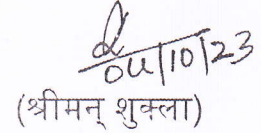 04/10/23
(श्रीमन् शुक्ला)